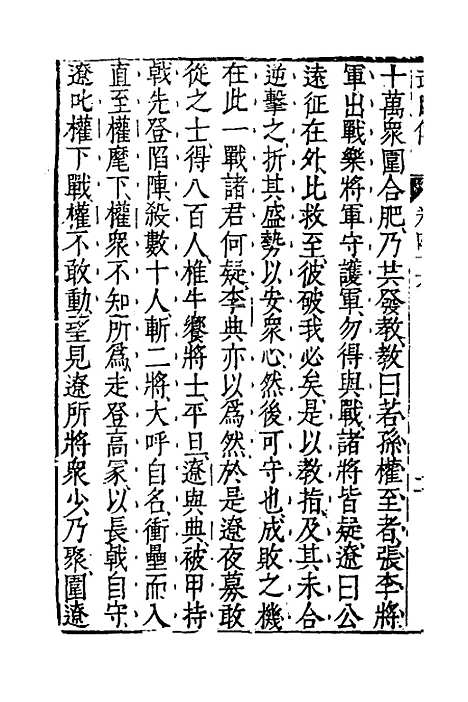 十萬衆圍合肥乃共發教教曰若孫權至者張李將
軍出戰樂將軍守護軍勿得與戰諸將皆疑遼曰公
遠征在外比救至彼破我必矣是以教指及其未合
逆擊之折其盛勢以安衆心然後可守也成敗之機
在此一戰諸君何疑李典亦以爲然於是遼夜募敢
從之士得八百人椎牛饗將士平旦遼與典被甲持
戟先登陷陣殺數十人斬二將大呼自名衝壘而入
直至權麾下權衆不知所爲走登高冢以長戟自守
遼叱權下戰權不敢動望見遼所將衆少乃聚圍遼